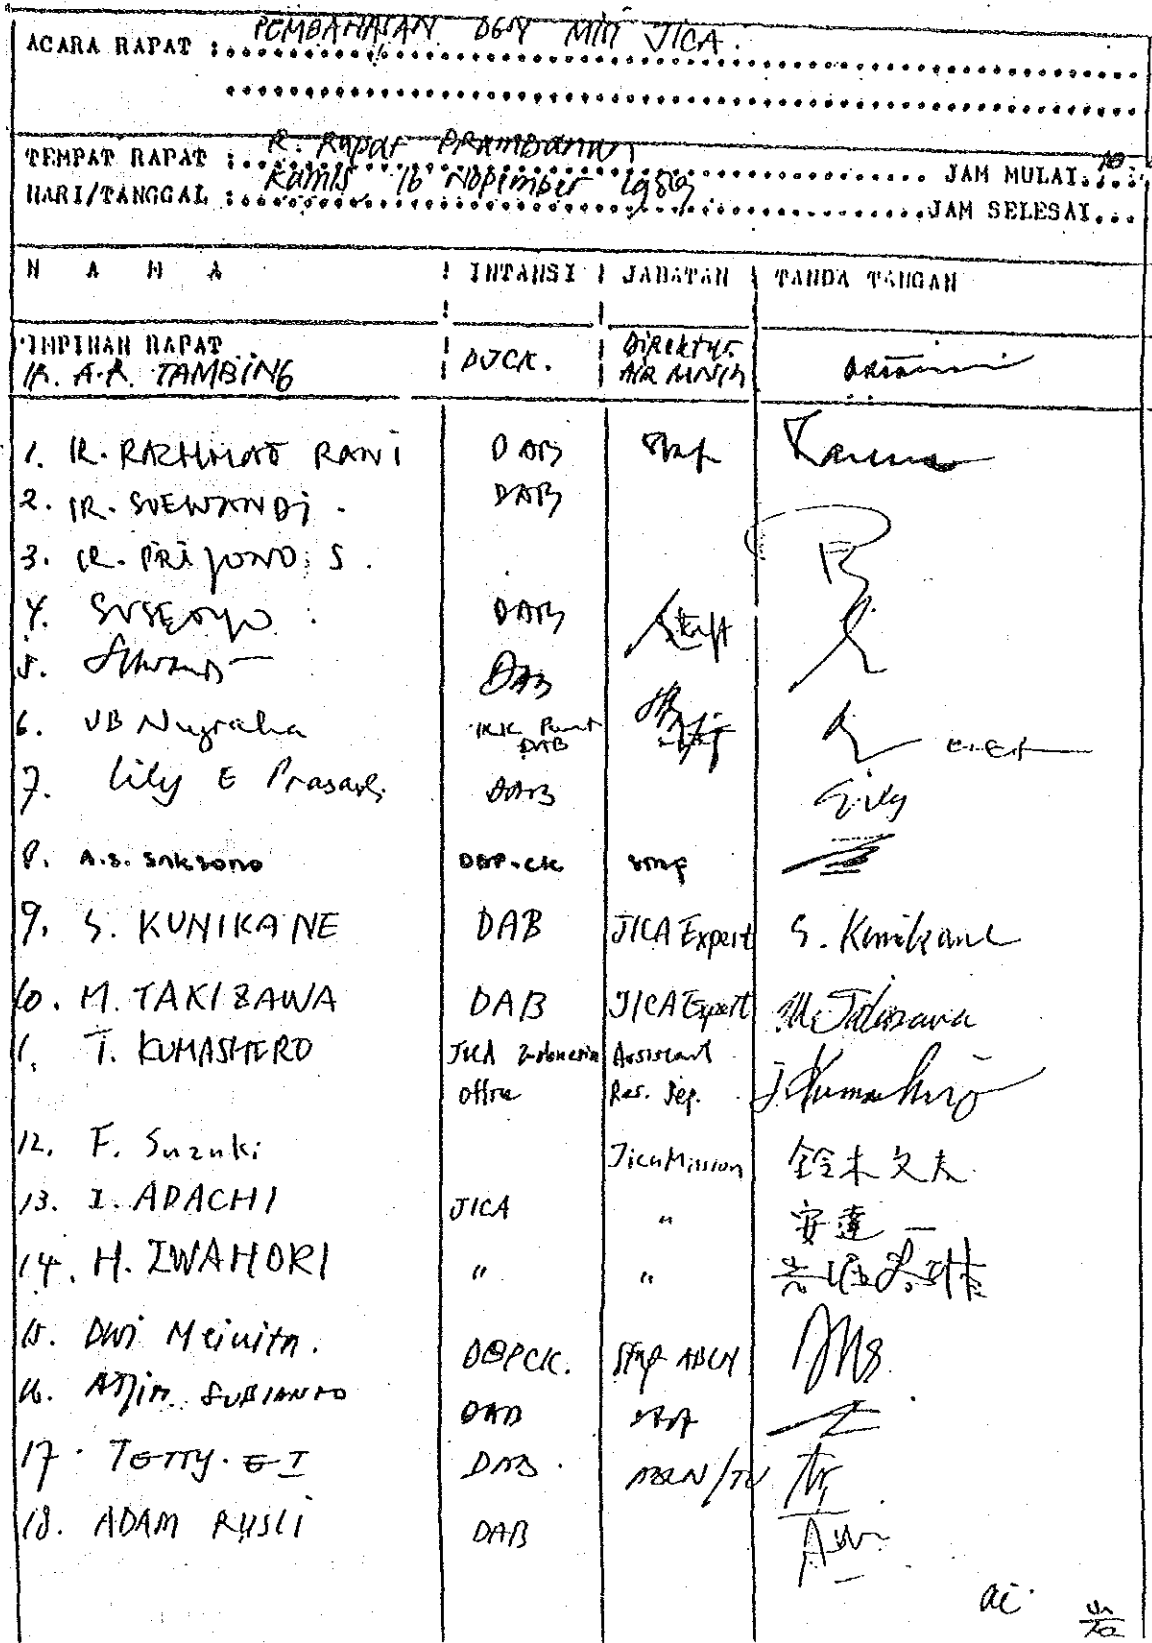 ACARA RAPAT : PEMBAHASAN DGN MIII JICA.
TEMPAT RAPAT : R. Rapat PRAMBANAN JAM MULAI 10
HARI/TANGGAL : Kamis 16 Nopimber 1989 JAM SELESAI
N A M A ! INTANSI ! JABATAN ! TANDA TANGAN
PIMPINAN RAPAT
IR. A.R. TAMBING DJCK. Direktur AIR BERSIH
1. IR. RACHMAT RANI DAB Staf
2. IR. SOEWANDI. DAB
3. IR. PRIYONO S.
4. SUSEOYO DAB Staff
5. DAB
6. VB Nugraha IKK DAB
7. Lily E Prasasti DAB Lily
8. A.S. SAKSONO DBP-CK Staf
9. S. KUNIKANE DAB JICA Expert S. Kunikane
10. M. TAKIZAWA DAB JICA Expert M. Takizawa
11. T. KUMASHIRO JICA Indonesia Office Assistant Res. Rep. T. Kumashiro
12. F. Suzuki Jica Mission 鈴木文夫
13. I. ADACHI JICA " 安達一
14. H. IWAHORI " "
15. Dwi Meinita. DBPCK. Staf ABLN
16. SUBIANTO DAB Staf
17. TETTY. E I DAB. ABLN/TU
18. ADAM RUSLI DAB